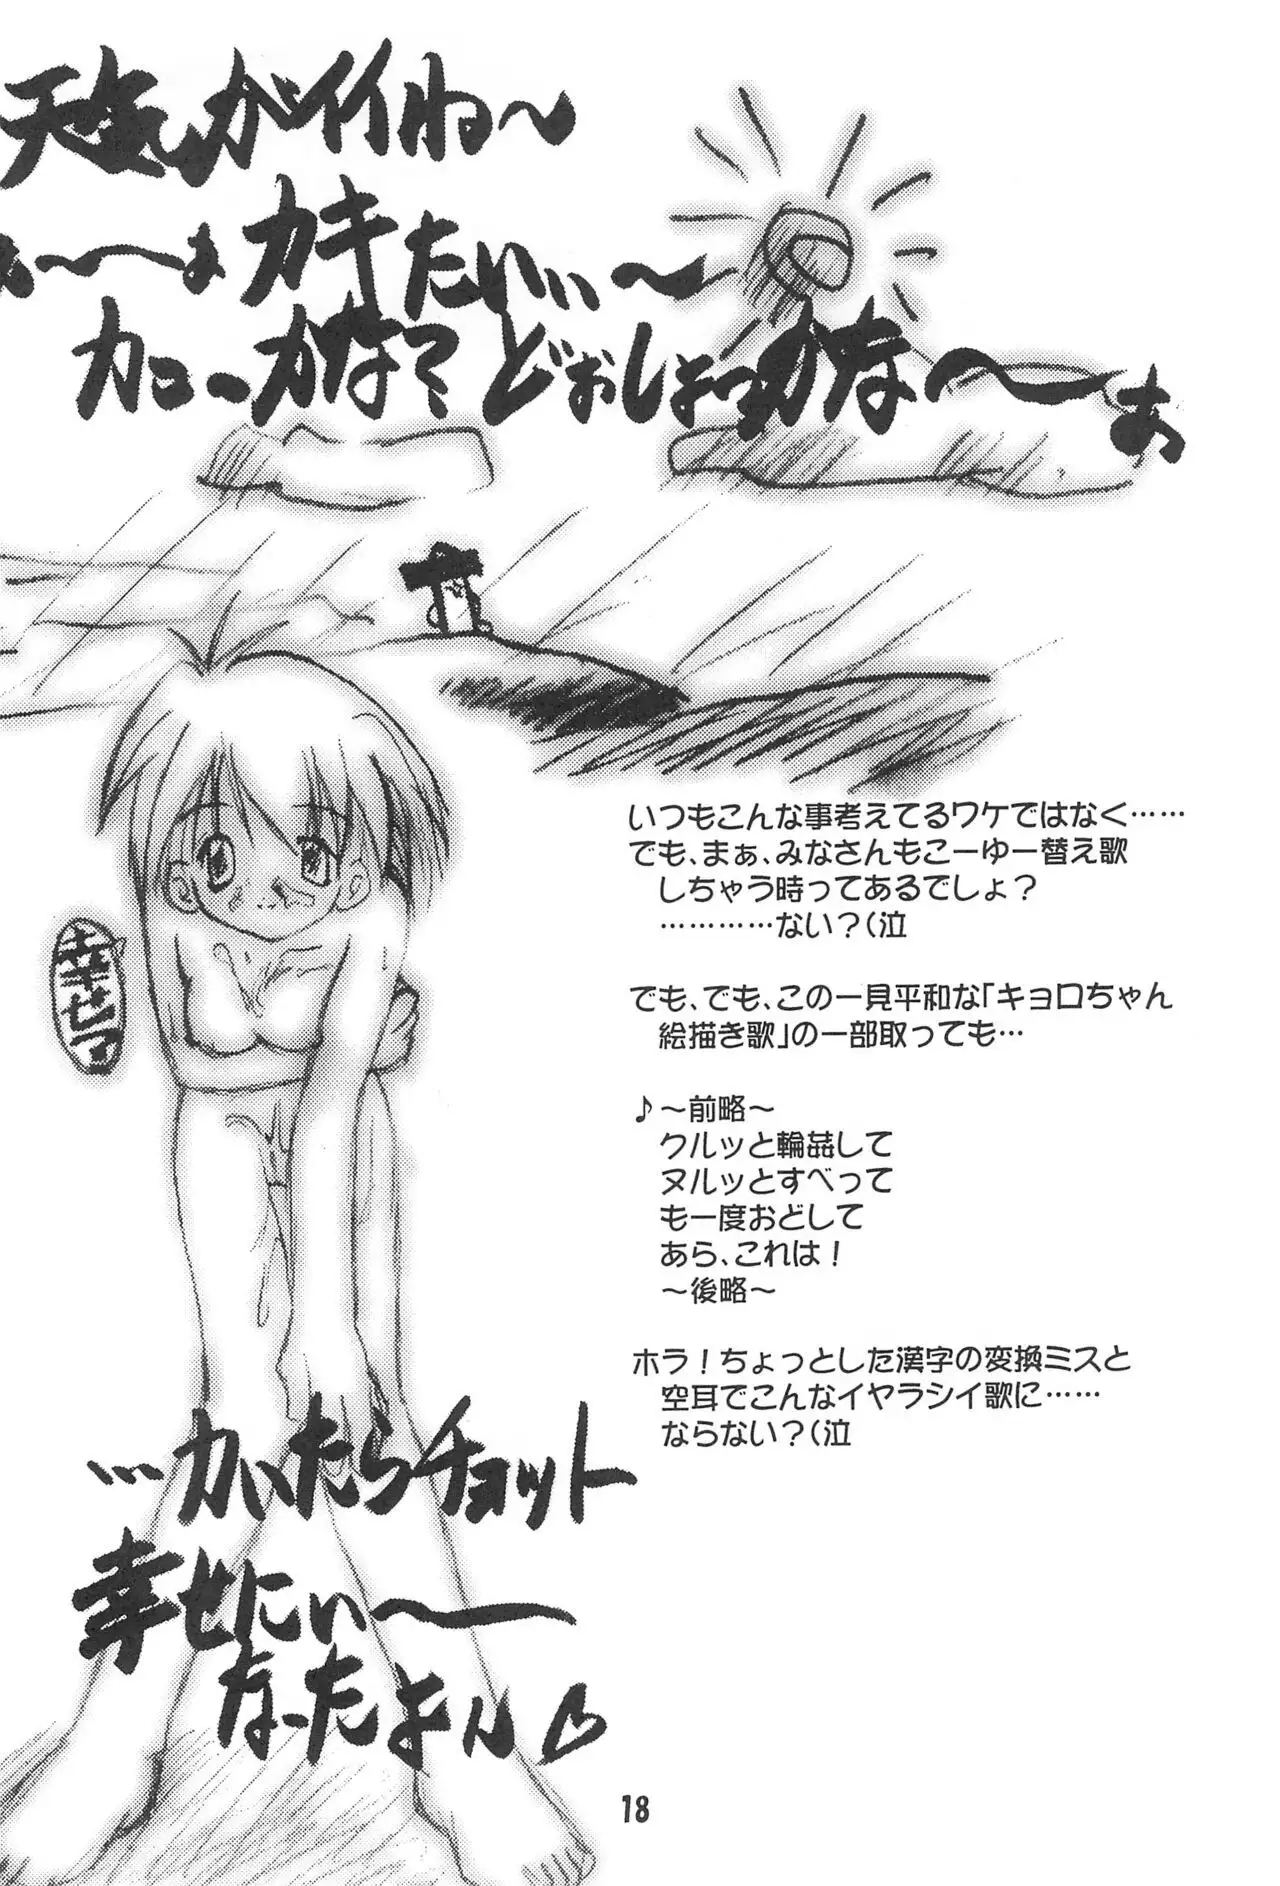 天気がイイね〜
カキたいぃ〜
カユーカなァ どぉしよっかな〜ぁ
いつもこんな事考えてるワケではなく……
でも、まぁ、みなさんもこーゆー替え歌
しちゃう時ってあるでしょ？
…………ない？(泣
でも、でも、この一見平和な「キョロちゃん
絵描き歌」の一部取っても…
♪〜前略〜
クルッと輪姦して
ヌルッとすべって
も一度おどして
あら、これは！
〜後略〜
ホラ！ちょっとした漢字の変換ミスと
空耳でこんなイヤラシイ歌に……
ならない？(泣
幸せ
…かいたらチョット
幸せにぃ〜
なったよん♡
18